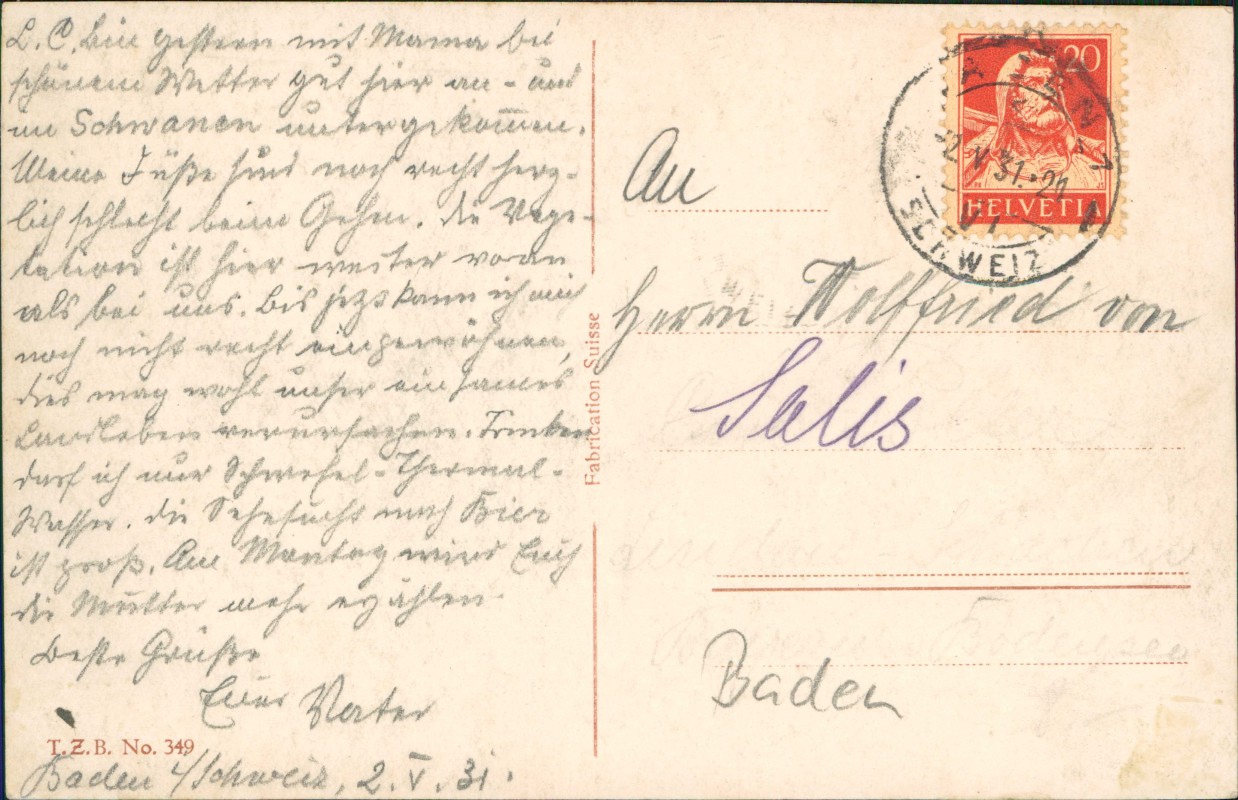 L. C. Bin gestern mit Mama bei
schönem Wetter gut hier an- und
im Schwanen untergekom̅en.
Meine Füße sind noch recht herz-
lich schlecht beim Gehen. Die Vege-
tation ist hier weiter voran
als bei uns. Bis jetzt kann ich mich
noch nicht recht eingewöhnen,
dies mag wohl unser einsames
Landleben verursachen. Trinken
darf ich nur Schwefel-Thermal-
Wasser. Die Sehnsucht nach Bier
ist groß. Am Montag wird Euch
die Mutter mehr erzählen.
Beste Grüße
Euer Vater
T.Z.B. No. 349
Baden i/Schweiz, 2.V.31.
Fabrication Suisse
20
HELVETIA
2.V.31.-21
SCHWEIZ
An
Herrn Wolffried von
Salis
Bodensee
Baden